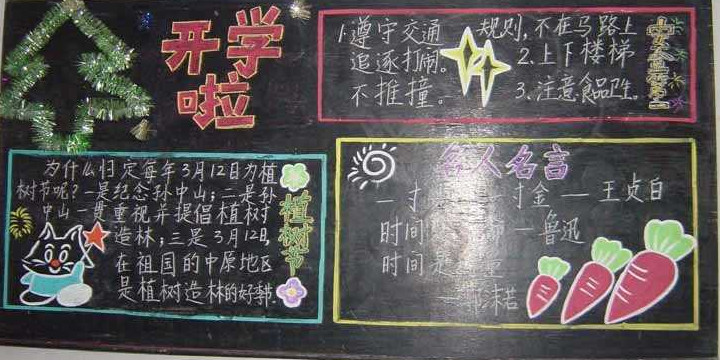 开学
啦
1.遵守交通 规则,不在马路上
追逐打闹。 2.上下楼梯
不推撞。 3.注意食品卫生。
为什么归定每年3月12日为植
树节呢?一是纪念孙中山;二是孙
中山一 重视并提倡植树
造林;三是3月12日,
在祖国的中原地区
是植树造林的好季节.
植树节
名人名言
一寸 寸金——王贞白
时间 —鲁迅
时间是
沫若